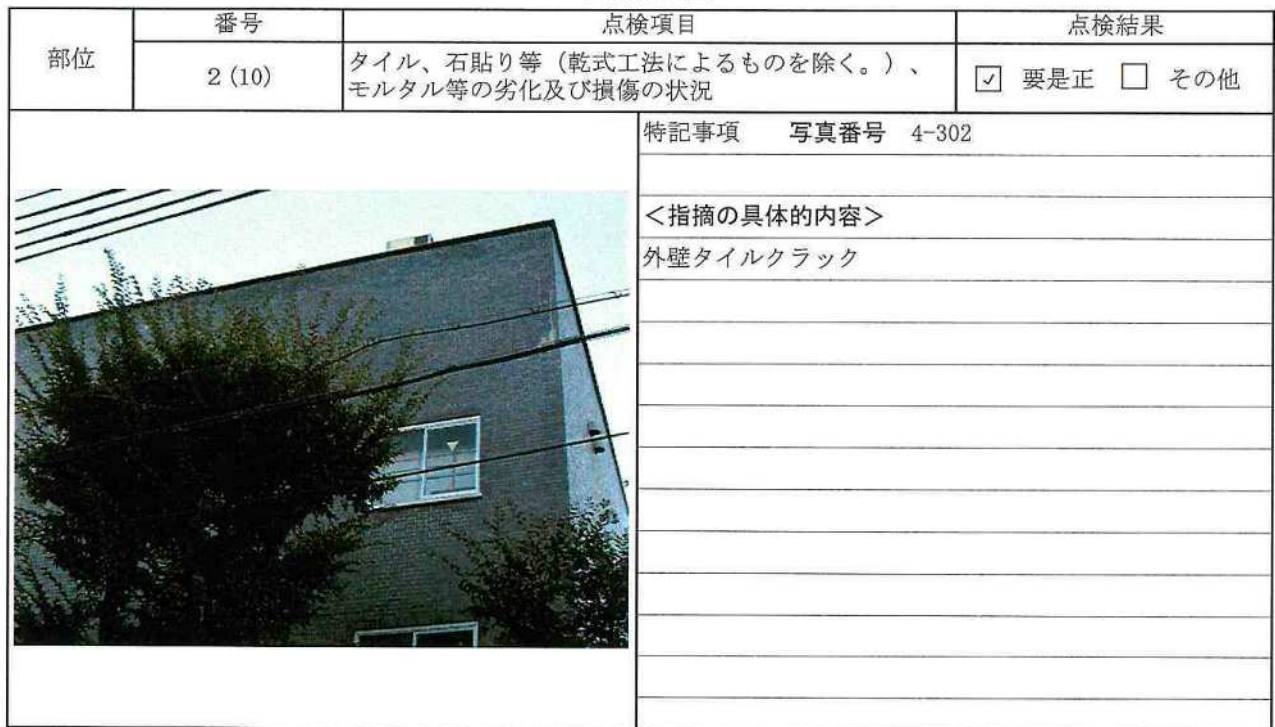 部位
番号
点検項目
点検結果
2 (10)
タイル、石貼り等（乾式工法によるものを除く。）、
モルタル等の劣化及び損傷の状況
☑ 要是正 □ その他
特記事項 写真番号 4-302
＜指摘の具体的内容＞
外壁タイルクラック